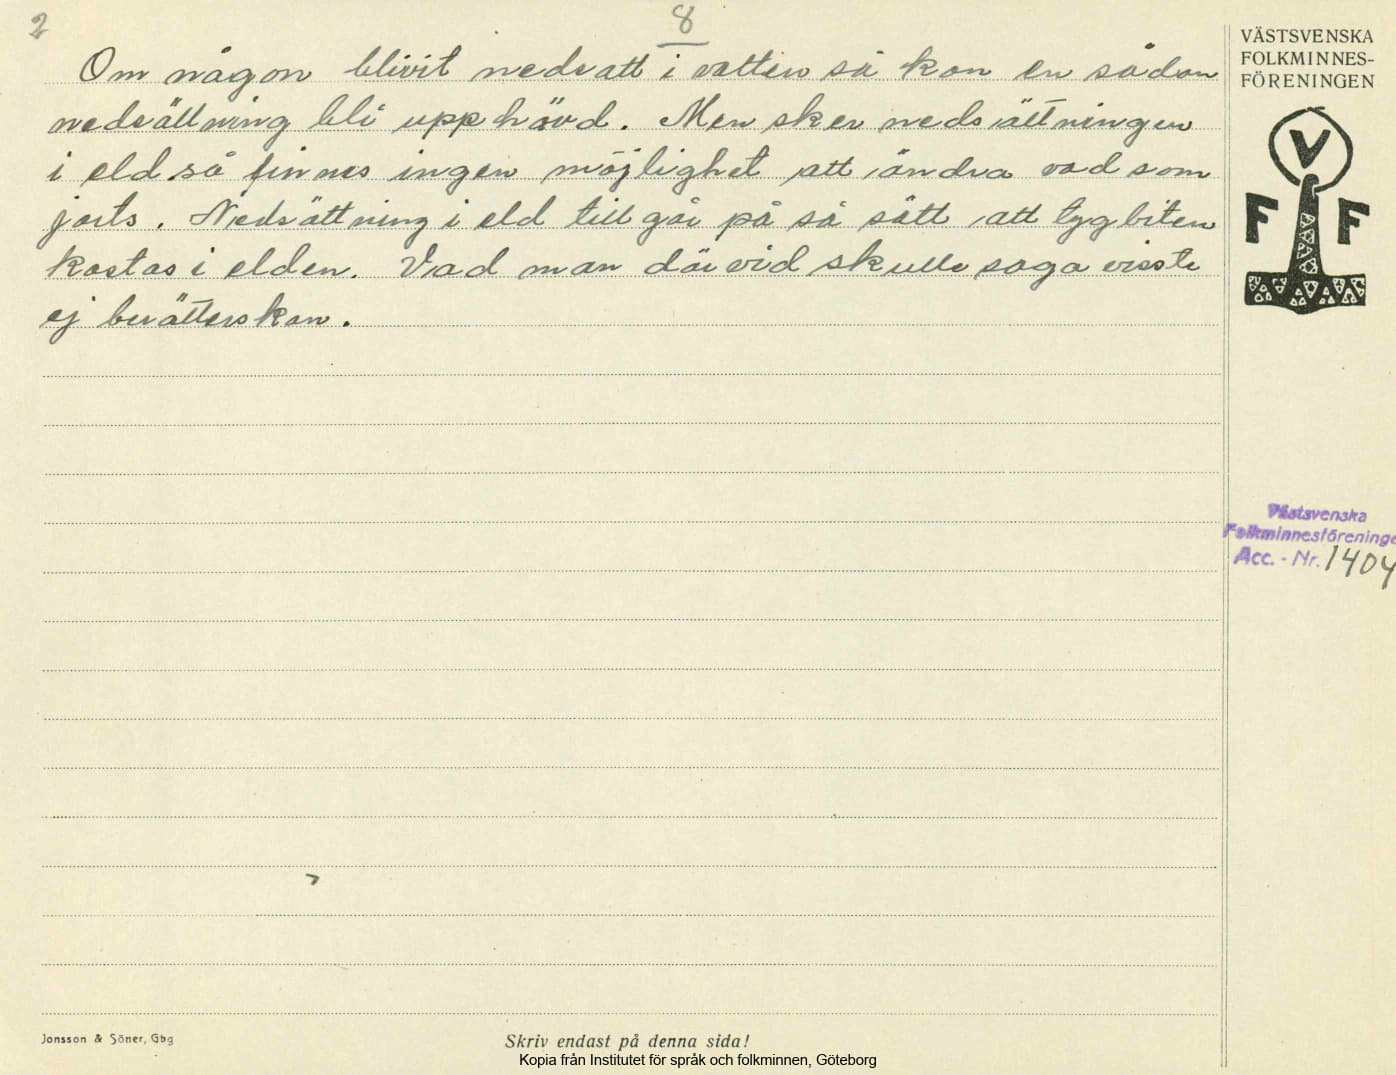 2
8
Om någon blivit nedsatt i vatten så kan en sådan
nedsättning bli upphävd. Men sker nedsättningen
i eld så finnes ingen möjlighet att ändra vad som
jorts. Nedsättning i eld till går på så sätt att tygbiten
kastas i elden. Vad man där vid skulle saga visste
ej berätterskan.
VÄSTSVENSKA
FOLKMINNES-
FÖRENINGEN
V
F F
Västsvenska
Folkminnesföreninge
Acc. - Nr. 1404
Jonsson & Söner, Gbg
Skriv endast på denna sida!
Kopia från Institutet för språk och folkminnen, Göteborg